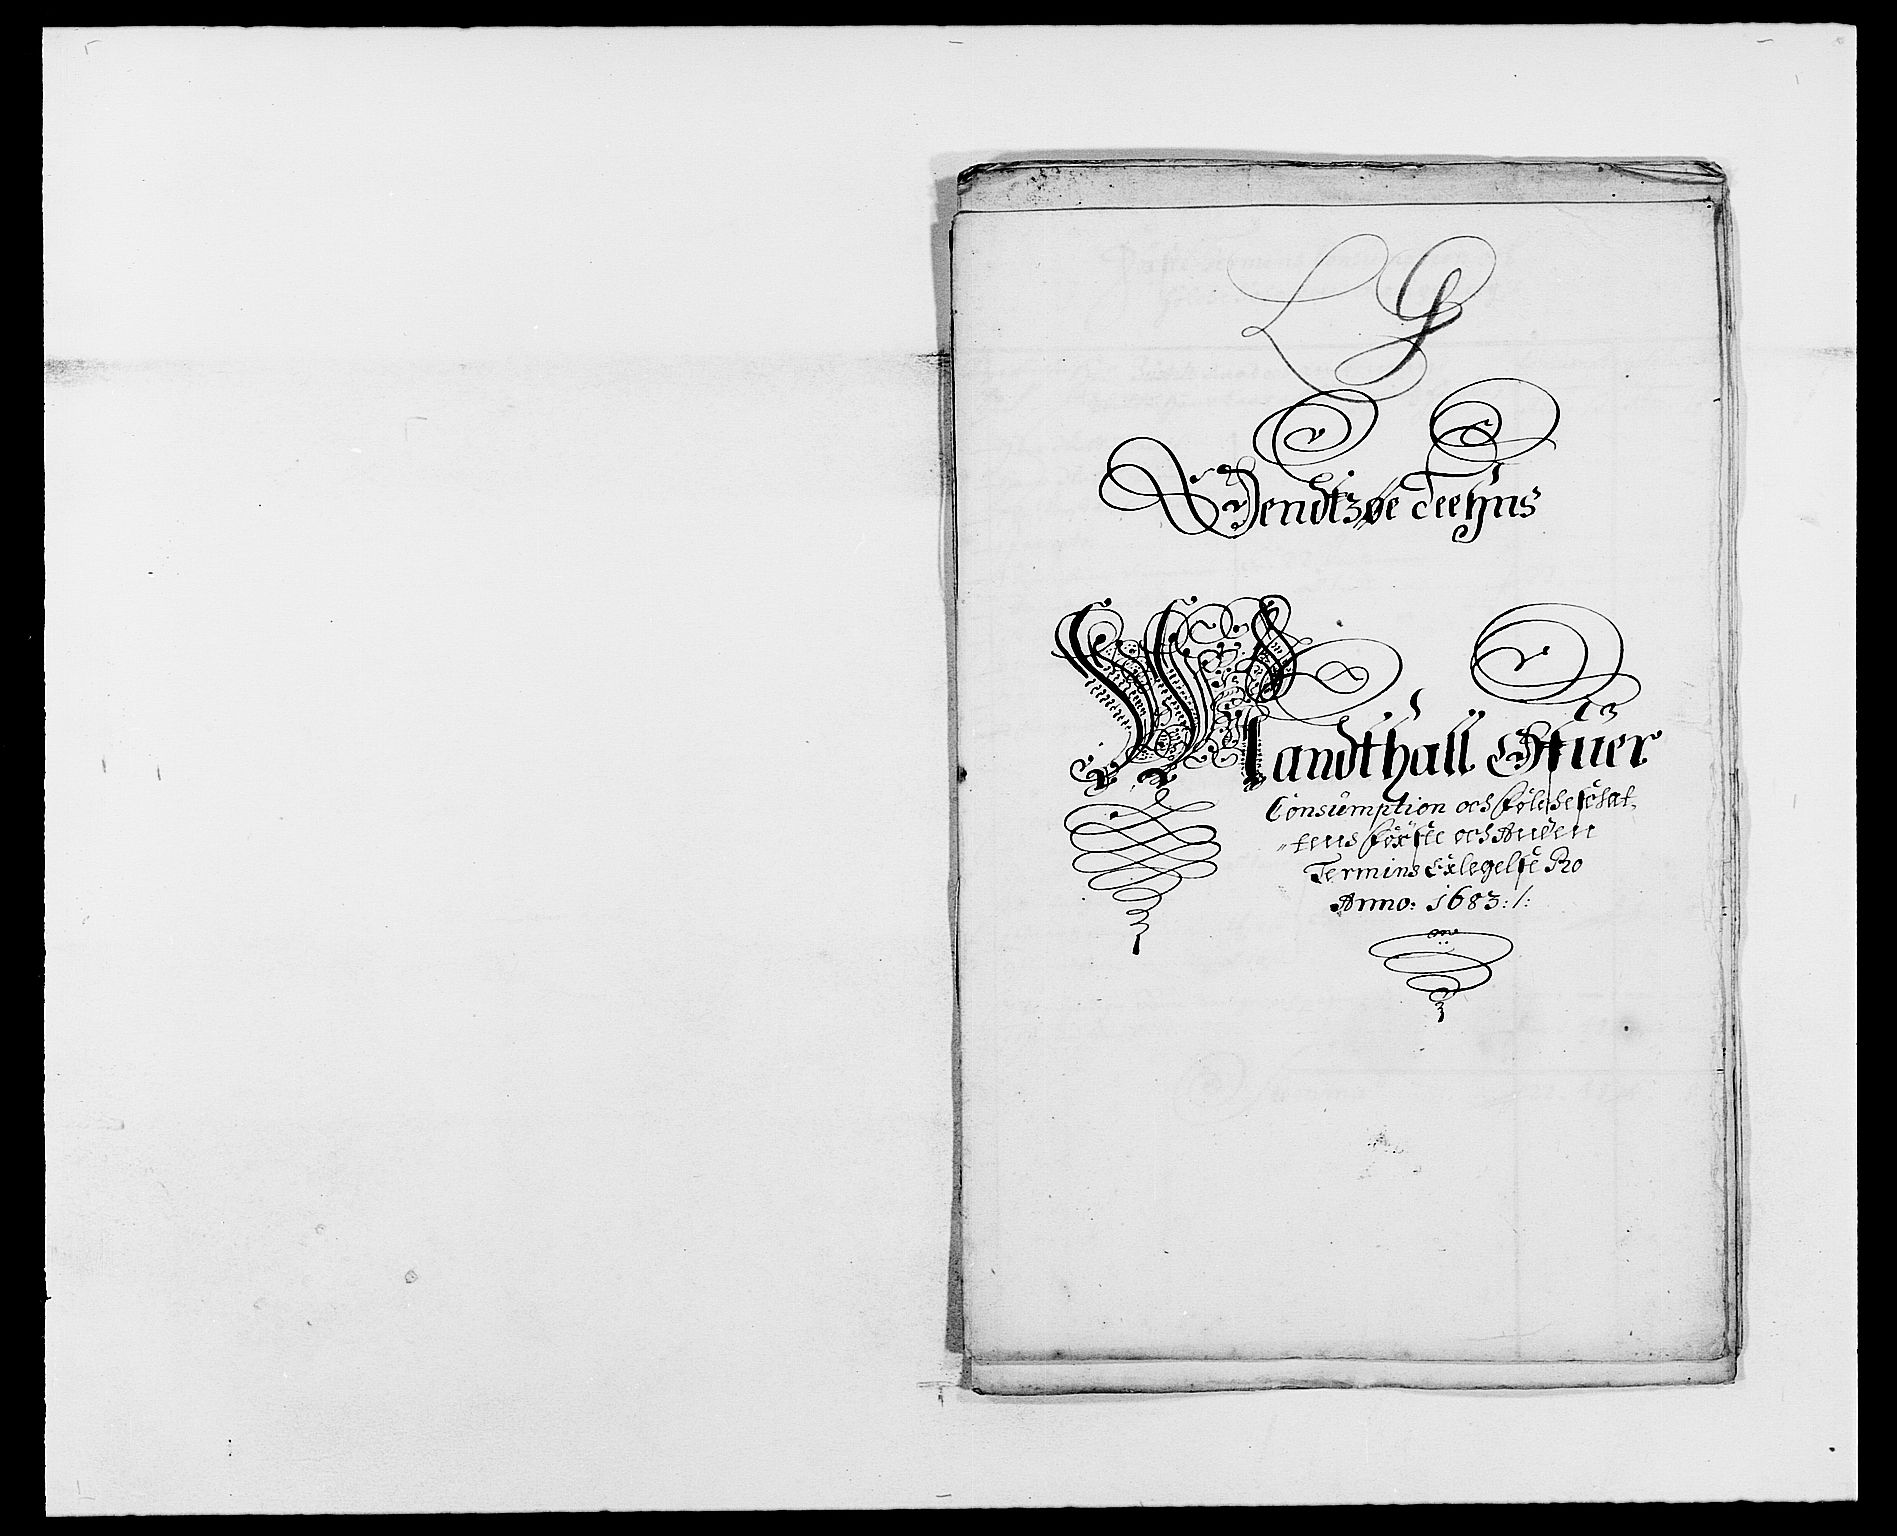 LG
Jendtzøe Leehns
Mandthall Schuer
Consumption och folcheschat,
„tens første och Anden
Termins Erlegelse Pro
Anno: 1683:/: